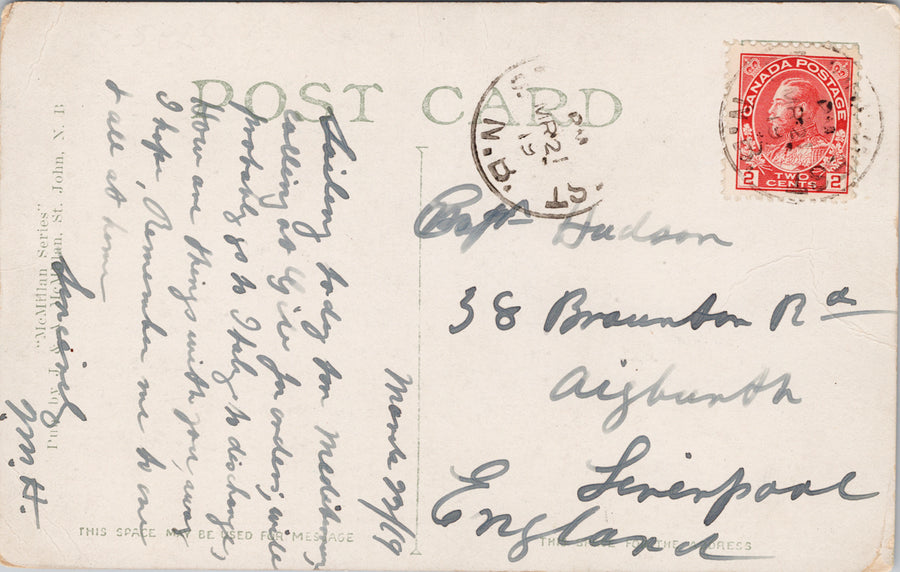 POST CARD
March 22/19
Sailing today for Mediterranean
calling at Gib for orders, will
probably go to Italy to discharge,
How are things with you, away
I hope, Remember me to one
& all at home
Sincerely
M.H.
"McMillan Series"
Pub. by J. & A. McMillan, St. John, N. B.
THIS SPACE MAY BE USED FOR MESSAGE
N.B.
PM
MR 21
19
CANADA POSTAGE
2 TWO CENTS 2
Capt Hudson
38 Braunton Rd
Aigburth
Liverpool
England
THIS SPACE FOR THE ADDRESS